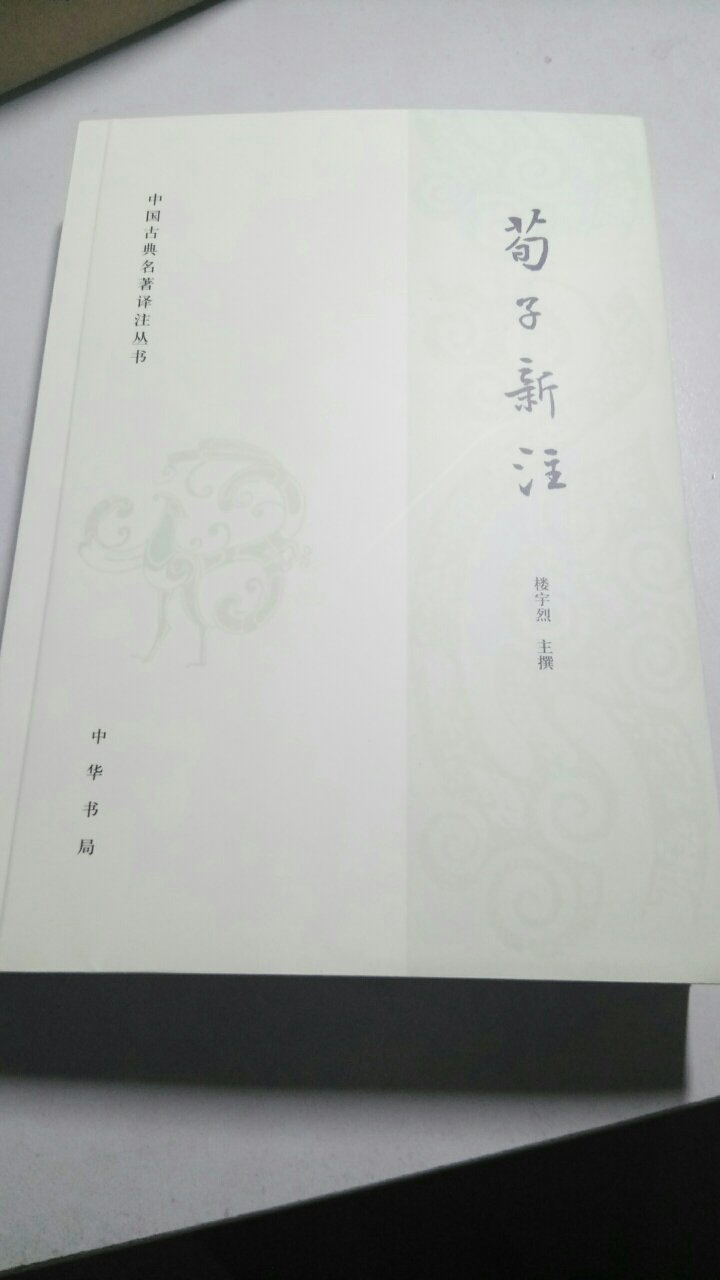 荀子新注
楼宇烈 主撰
中国古典名著译注丛书
中华书局